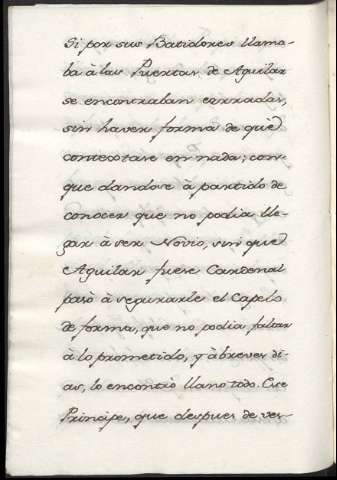 Si por sus Batidores llama-
ba à las Puertas de Aguilar
se encontraban cerradas,
sin haver forma de què
contextase en nada; con-
que dandose à partido de
conocer que no podia lle-
gar à ser Novio, sin que
Aguilar fuese Cardenal
pasò à segurarle el Capelo
de forma, que no podia faltar
à lo prometido, y à breves di-
as, lo encontrò llano todo. Ese
Principe, que despues de ver-